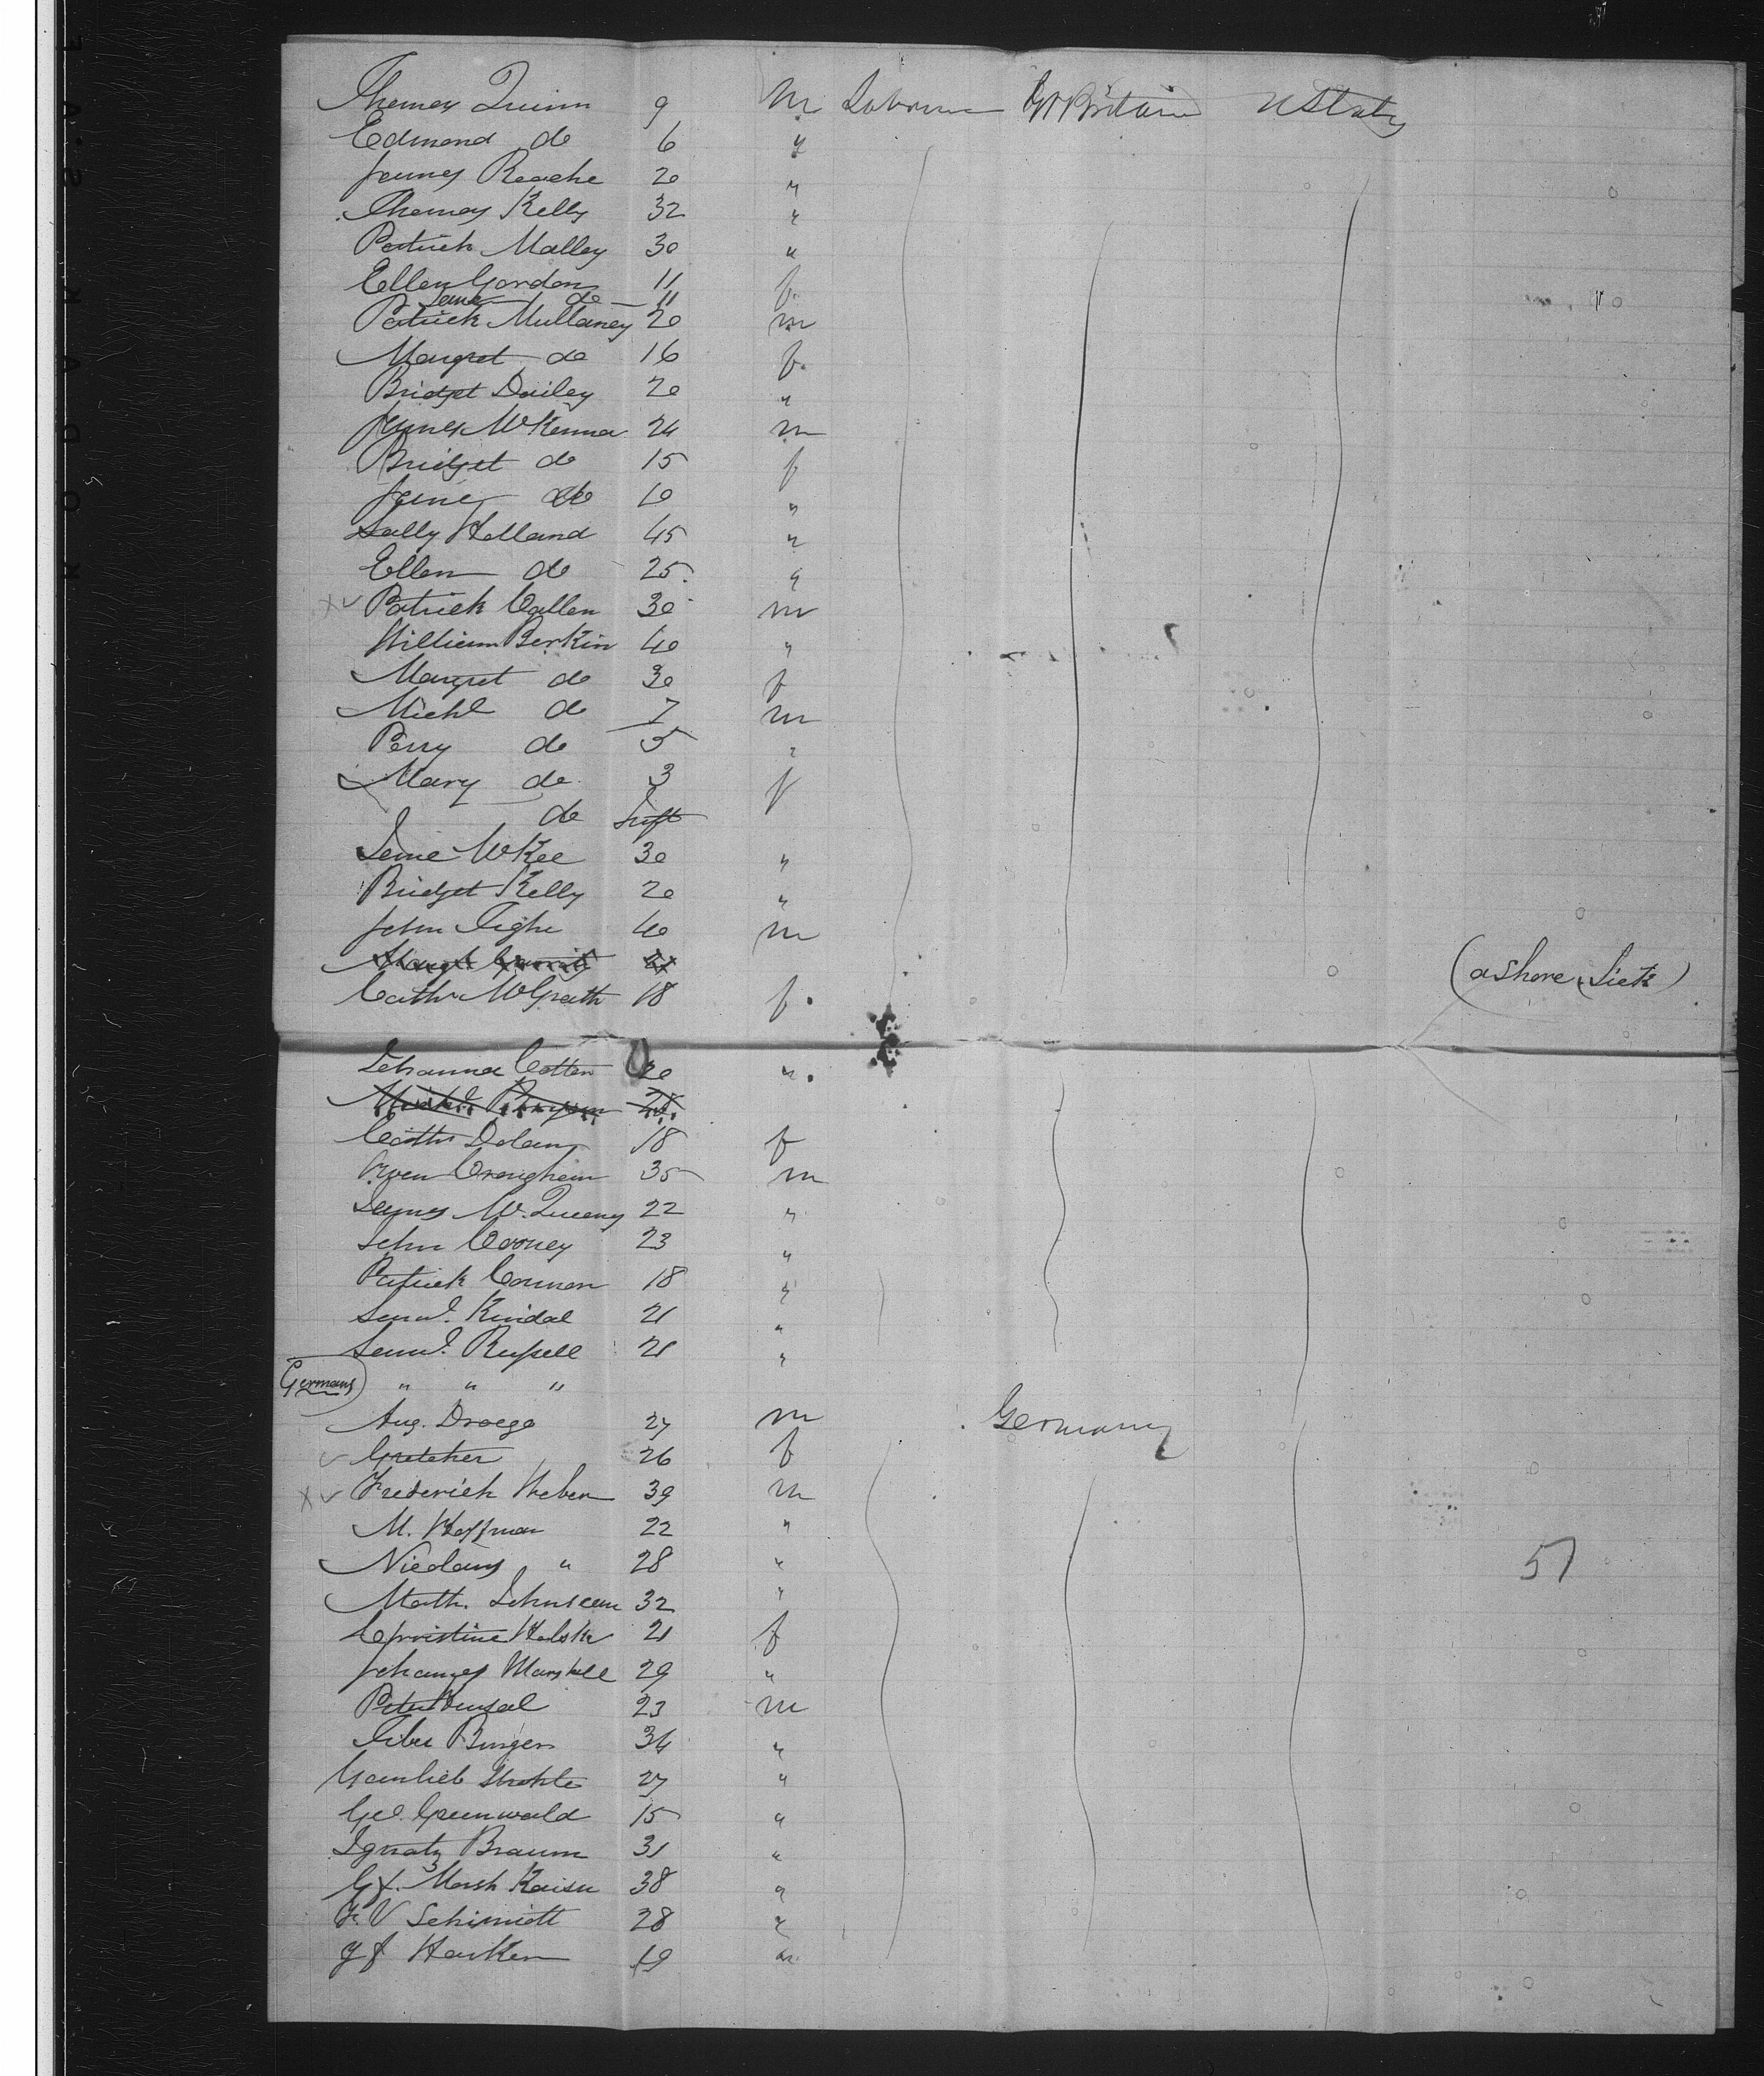 Thomas Quinn 9 m Labourer Gt Britain U States
Edmond do 6 "
James Roache 20 "
Thomas Kelly 32 "
Patrick Malley 30 "
Ellen Gordon 11 f
Jane do 11
Patrick Mullaney 20 m
Margret do 16 f.
Bridget Dailey 20 "
James McKenna 24 m
Bridget do 15 f
Jane do 10 "
Sally Holland 45 "
Ellen do 25 "
Patrick Callen 30 m
William Berkin 40 "
Margret do 30 f
Michl do 7 m
Perry do 5 "
Mary do 3 f
do Inft
Jane McKee 30 "
Bridget Kelly 20 "
John Tighe 40 m
(ashore Sick)
Cathr McGrath 18 f.
Johanna Cotter 20 "
Cathr Dolan 18 f
Owen Croughan 35 m
James McQueeny 22 "
John Cooney 23 "
Patrick Connor 18 "
Saml. Kindal 21 "
Saml. Russell 21 "
(Germans) " " "
Aug. Droege 27 m Germany
Gretchen 26 f
Frederich Weber 39 m
M. Hoffman 22 "
Nicolaus " 28 "
Math. Johnsean 32 "
Christine 21 f
Johannes Marshall 29 "
Peter 23 m
Burger 34 "
27 "
Geo. Greenwald 15 "
Ignatz Braum 31 "
Marsh Kaiser 38 "
F. V Schimidt 28 "
Harken 19 "
51